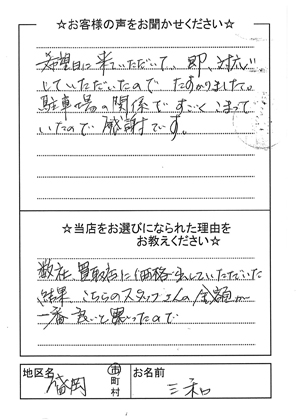 ☆お客様の声をお聞かせください☆
希望日に来ていただいて、即、対応
していただいたので たすかりました。
駐車場の関係ですごくこまって
いたので 感謝です。
☆当店をお選びになられた理由を
お教えください☆
数社 買取店に価格出していただいた
結果 こちらのスタッフさんの金額が
一番 良いと思ったので
地区名
盛岡
市
町
村
お名前
三和